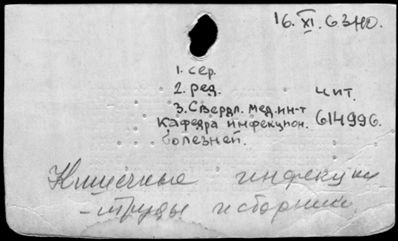 16. XI. 63
1. сер.
2. ред. чит.
3. Свердл. мед. ин-т
Кафедра инфекцион. 614996.
болезней.
Кишечные инфекции
- труды и сборники